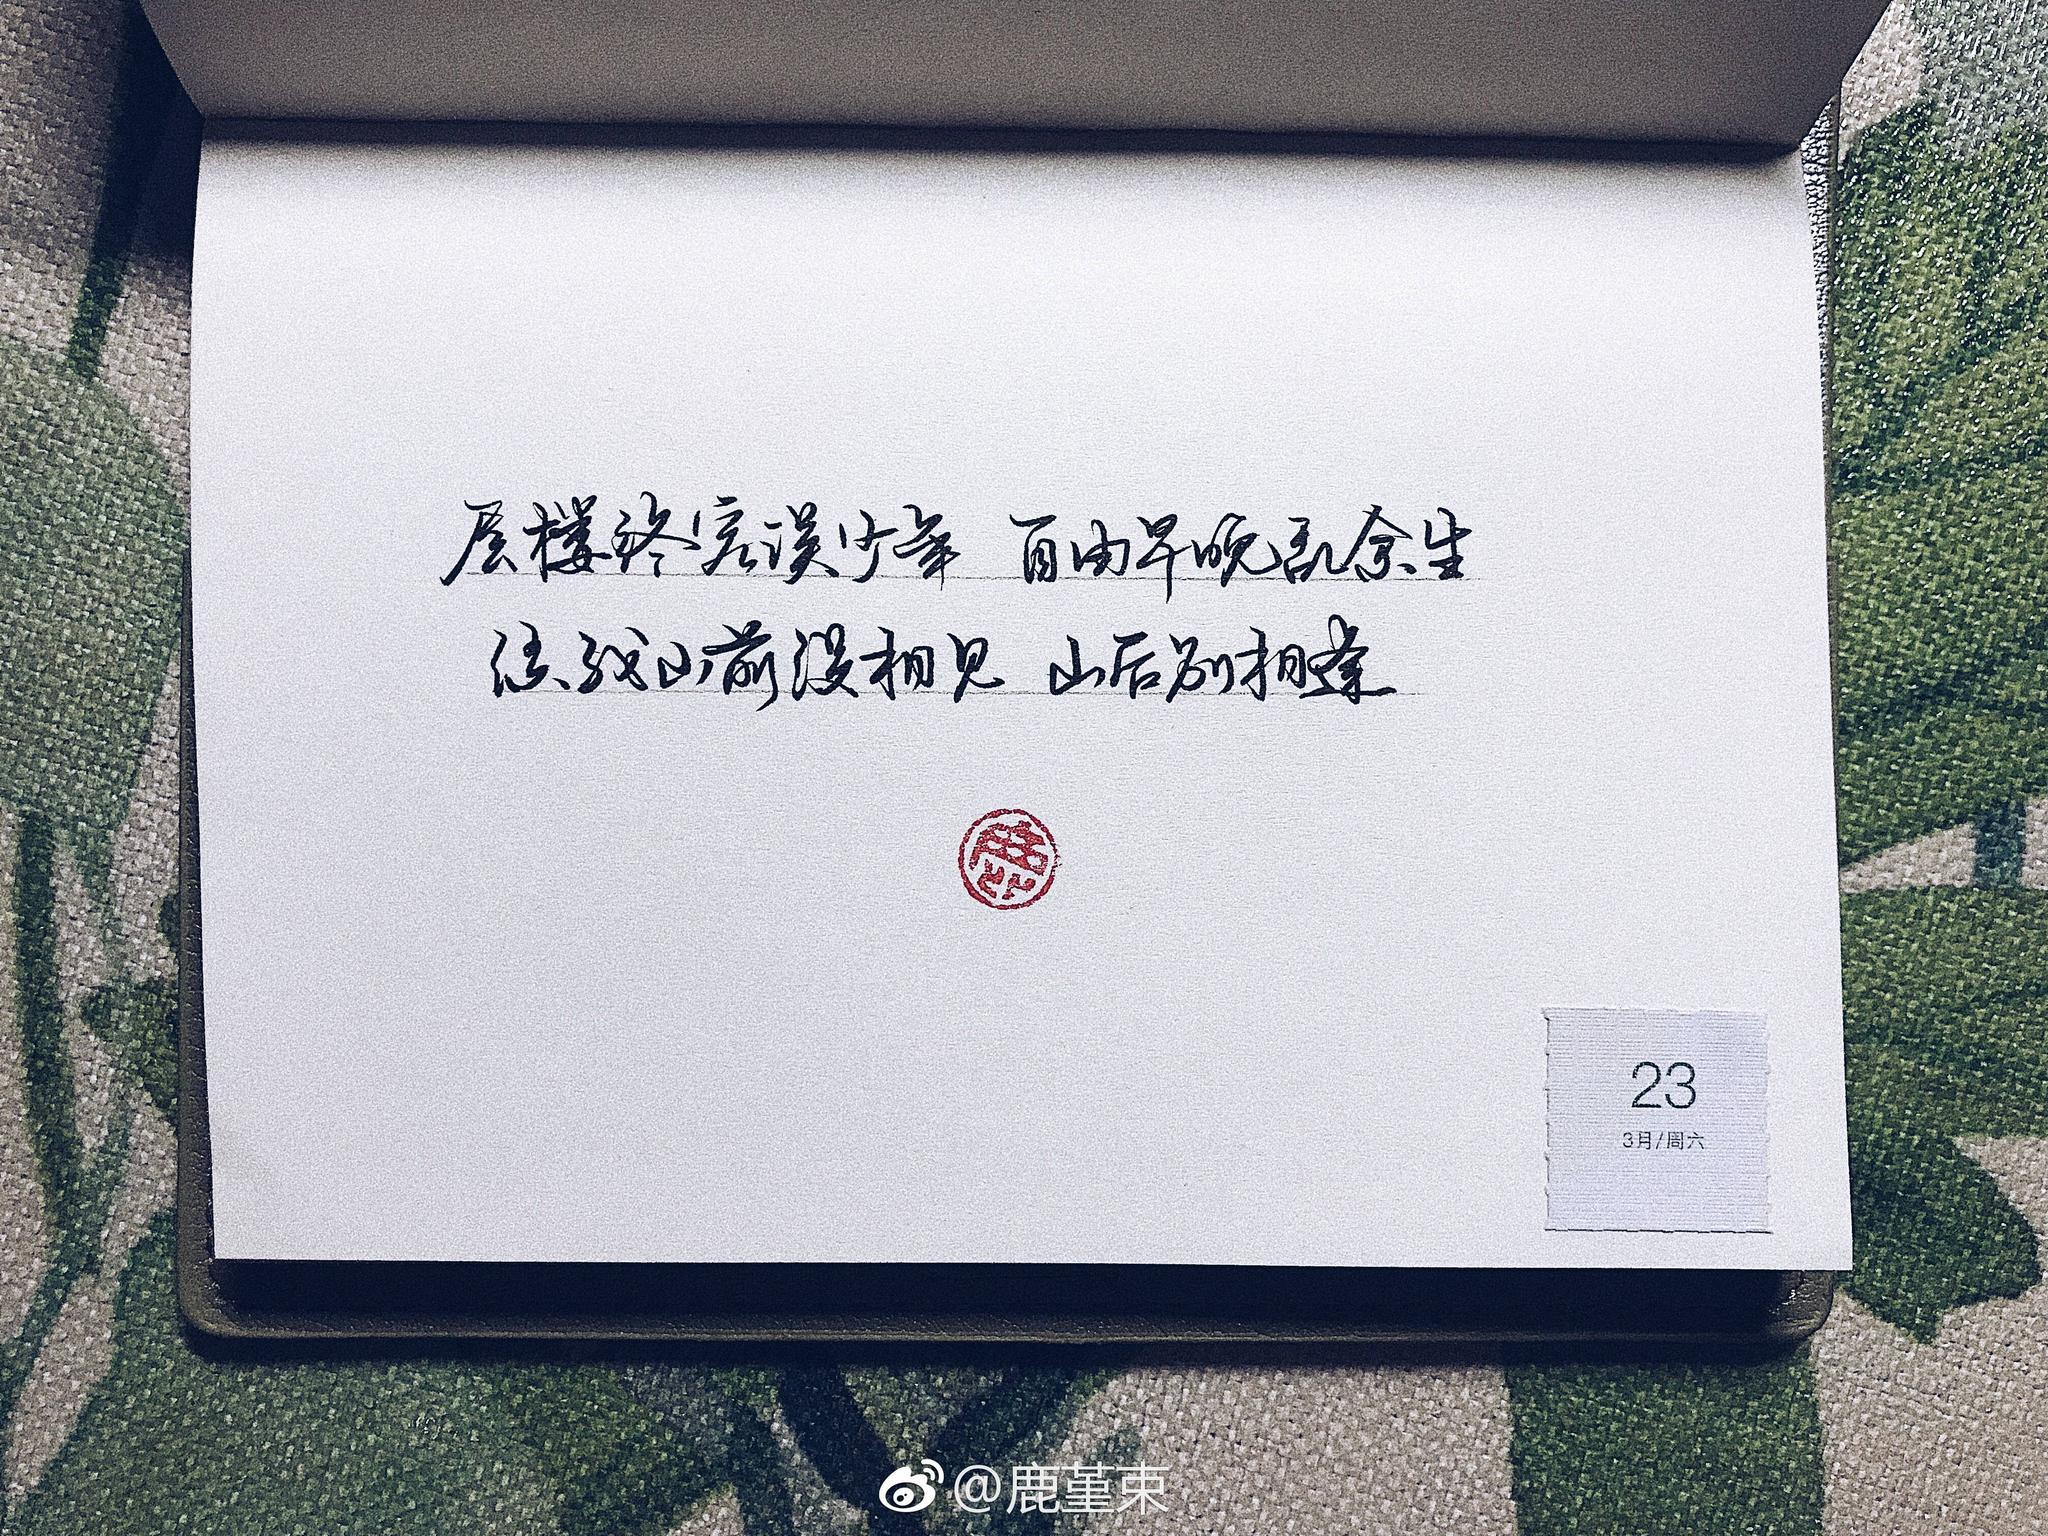 层楼终究误少年 自由早晚乱余生
你我山前没相见 山后别相逢
23
3月/周六
@鹿堇束